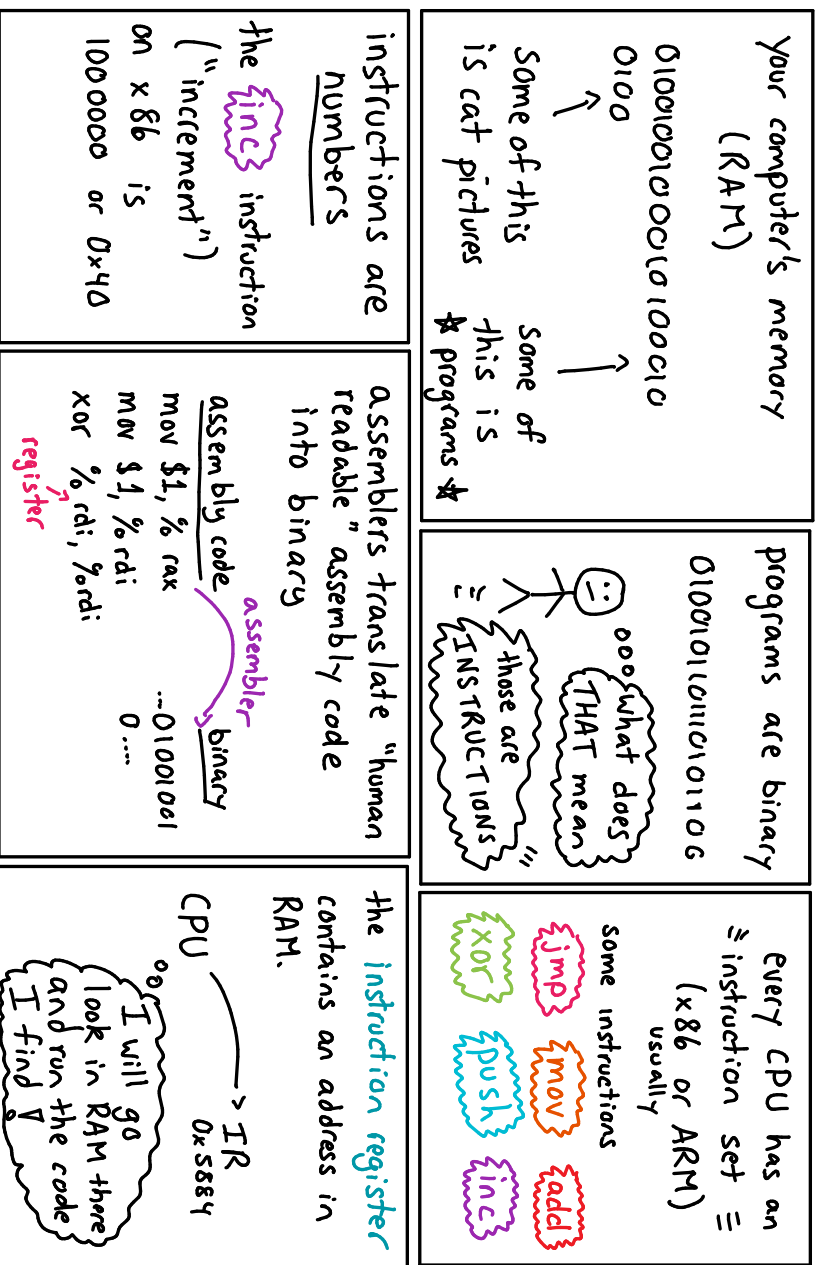 your computer's memory
(RAM)
010010010000101000010
0100
some of this
is cat pictures
some of
this is
☆ programs ☆
programs are binary
0100101101110101100
what does
THAT mean
those are
INSTRUCTIONS
every CPU has an
instruction set
usually
(x86 or ARM)
some instructions
jmp mov add
xor push inc
instructions are
numbers
the inc instruction
("increment")
on x86 is
1000000 or 0x40
assemblers translate "human
readable" assembly code
into binary
assembler
assembly code
binary
mov $1, % rax
mov $1, % rdi
xor % rdi, %rdi
register
...01001001
0....
the instruction register
contains an address in
RAM.
CPU
IR
0x5884
I will go
look in RAM there
and run the code
I find!